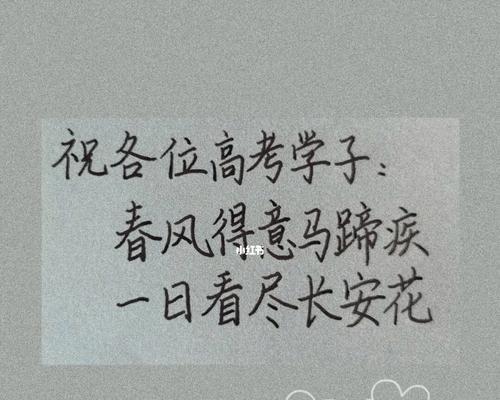 祝各位高考学子：
春风得意马蹄疾
小红书
一日看尽长安花